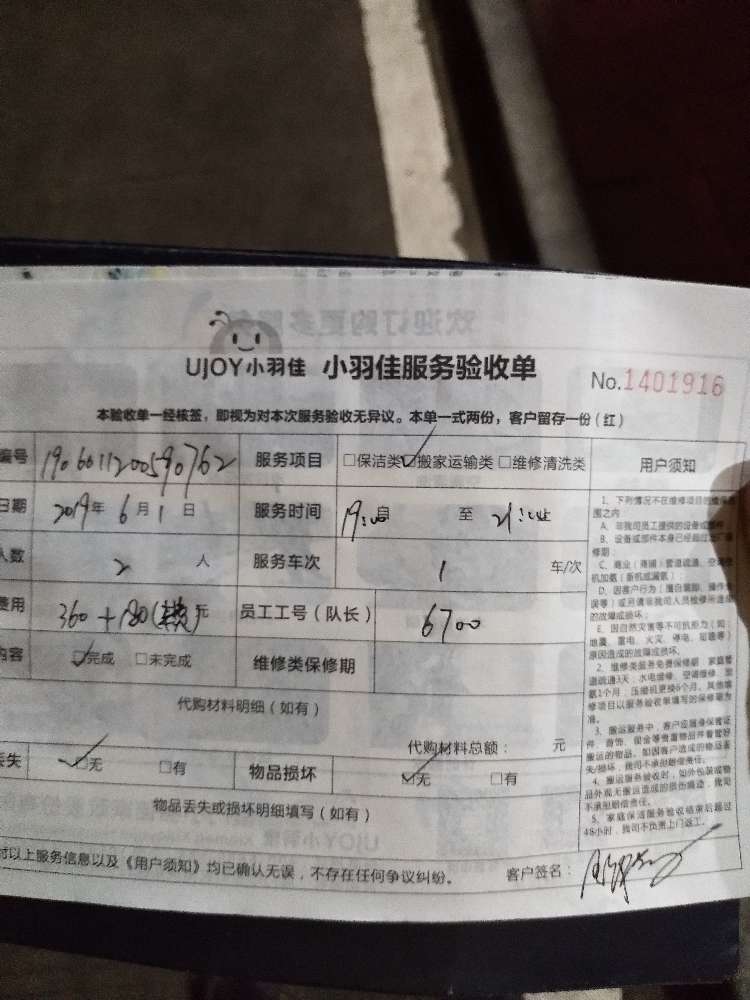 UJOY小羽佳 小羽佳服务验收单
No.1401916
本验收单一经核签，即视为对本次服务验收无异议。本单一式两份，客户留存一份（红）
编号 190601120090762 服务项目 □保洁类 ☑搬家运输类 □维修清洗类 用户须知
日期 2019年 6月 1日 服务时间 19:00 自 至 21:
人数 2 人 服务车次 1 车/次
费用 360+180( 元 员工工号（队长） 6700
内容 ☑完成 □未完成 维修类保修期
代购材料明细（如有）
代购材料总额： 元
丢失 ☑无 □有 物品损坏 ☑无 □有
物品丢失或损坏明细填写（如有）
对以上服务信息以及《用户须知》均已确认无误，不存在任何争议纠纷。 客户签名：
1、下列情况不在维修项目的维保范
围之内
A、非我司员工提供的设备或部件
B、设备或部件本身已经超过出厂保
修期；
C、商业（商铺）管道疏通、空调
机加氨（新机或漏氨）
D、因客户行为（擅自装卸、操作
误等）或另请非我司人员检修所造成
的故障或损坏；
E、因自然灾害等不可抗拒力（如：
地震、雷电、火灾、停电、短路等）
原因造成的故障或损坏。
2、维修类服务免费保修期：家庭管
道疏通3天；水电维修、空调维修、加
氨1个月；压缩机更换6个月。其他维
修项目以服务验收单填写的保修期为
准。
3、搬运服务中，客户应随身保管证
件、首饰、现金等贵重物品并看管好
搬运的物品。如因客户造成的物品丢
失/损坏，我司不承担赔偿责任。
4、搬运服务验收时，如外包装或物
品外观无搬运造成的损伤痕迹，我司
不承担赔偿责任。
5、家庭保洁服务验收结束后超过
48小时，我司不负责上门返工。